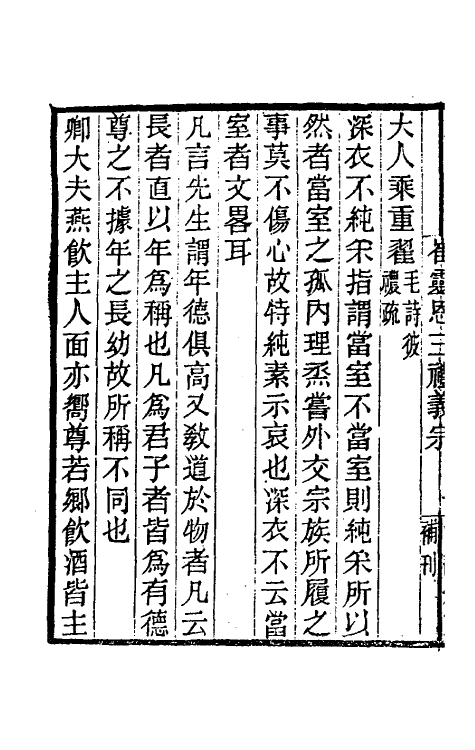 崔靈恩三禮義宗
補刊
大人乘重翟毛詩彼
禮疏
深衣不純采指謂當室不當室則純采所以
然者當室之孤內理烝嘗外交宗族所履之
事莫不傷心故特純素示哀也深衣不云當
室者文畧耳
凡言先生謂年德俱高又敎道於物者凡云
長者直以年爲稱也凡爲君子者皆爲有德
尊之不據年之長幼故所稱不同也
卿大夫燕飮主人面亦嚮尊若鄉飮酒皆主